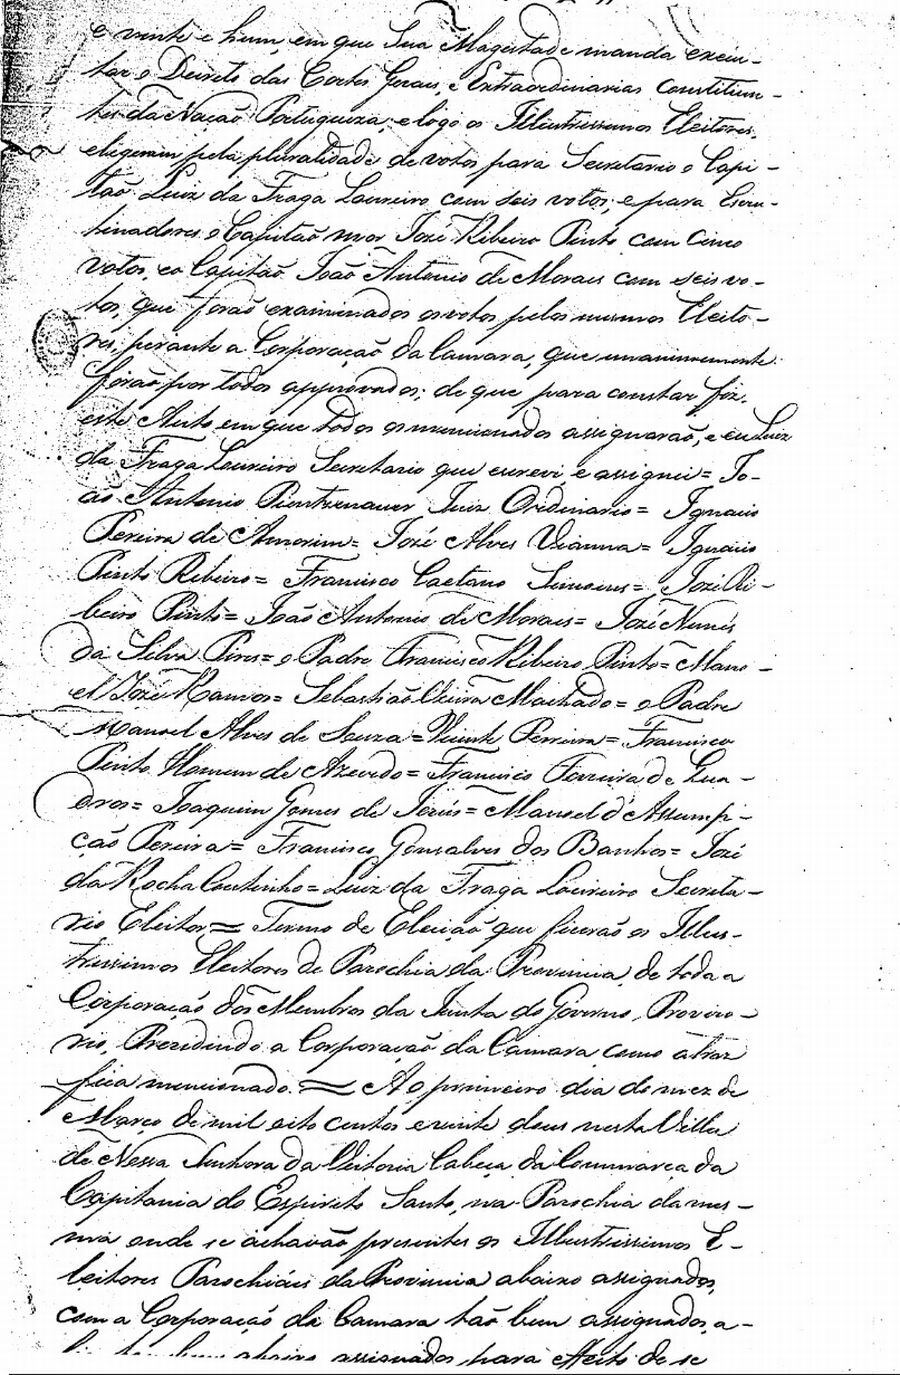 e vinte e hum, em que Sua Magestade manda execu-
tar o Decreto das Cortes Geraes, e Extraordinarias Constituin-
tes da Nação Portugueza, e logo os Illustrissimos Eleitores,
elegeram pela pluralidade de votos para Secretario o Capi-
tão Luiz da Fraga Loureiro com seis votos; e para Escru-
tinadores o Capitão mor José Ribeiro Pinto com Cinco
votos, e o Capitão João Antonio de Moraes com seis vo-
tos, que forão examinados os votos pelos mesmos Eleito-
res, perante a Corporação da Camara, que unanimemente
forão por todos approvados; de que para constar fiz
este Auto em que todos os mencionados assignarão, e eu Luiz
da Fraga Loureiro Secretario que escrevi, e assignei = Jo-
ão Antonio Juiz Ordinario = Ignacio
Pereira de Amorim = José Alves Vianna = Ignacio
Pinto Ribeiro = Francisco Caetano Simoens = José Ri-
beiro Pinto = João Antonio de Moraes = José Nunes
da Silva Pires = o Padre Francisco Ribeiro Pinto = Mano-
el José Ramos = Sebastião Vieira Machado = o Padre
Manoel Alves de Souza = Vicente Pereira = Francisco
Pinto Homem de Azevedo = Francisco Ferreira de Qua-
dros = Joaquim Gomes de Jesús = Manoel d'Assump-
ção Pereira = Francisco Gonsalves dos Banhos = José
da Rocha Coutinho = Luiz da Fraga Loureiro Secreta-
rio Eleitor = Termo de Eleição que fizerão os Illus-
trissimos Eleitores de Parochia da Provincia, de toda a
Corporação dos Membros da Junta do Governo Proviso-
rio, Prezidindo a Corporação da Camara como atraz
fica mencionado. = Ao primeiro dia do mez de
Março de mil oito centos e vinte dous nesta Villa
de Nossa Senhora da Victoria Cabeça da Commarca da
Capitania do Espirito Santo, na Parochia da mes-
ma onde se achavão presentes os Illustrissimos E-
leitores Parochiáes da Provincia abaixo assignados,
com a Corporação da Camara tão bem assignados, a-
abaixo assignados para effeito de se